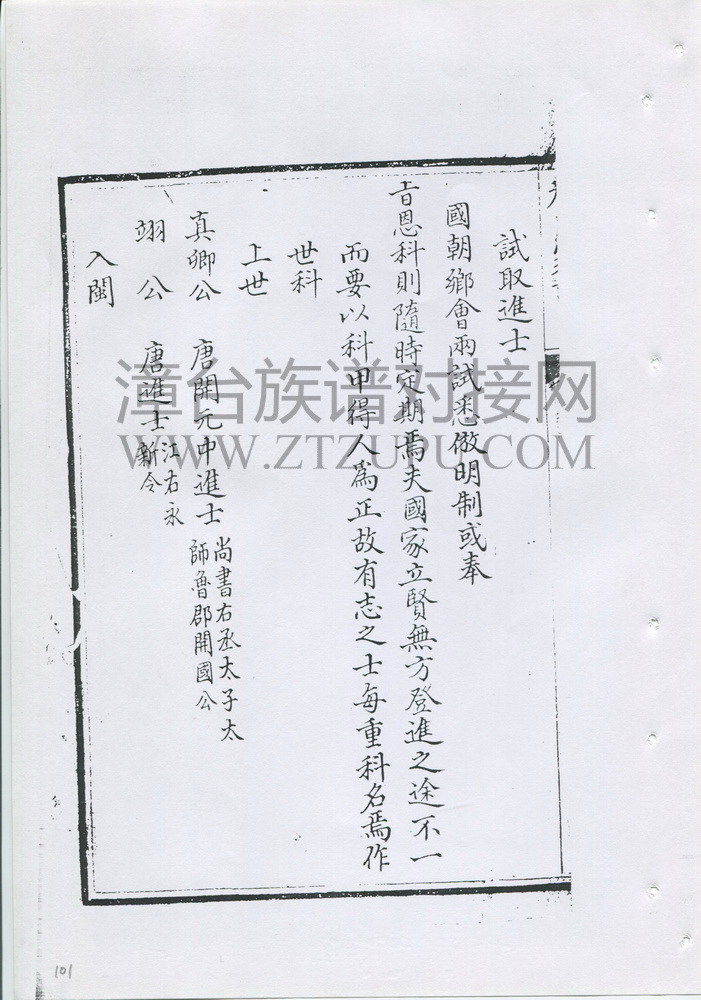 試取進士
國朝鄉會兩試悉倣明制或奉
旨恩科則隨時定期焉夫國家立賢無方登進之途不一
而要以科甲得人為正故有志之士每重科名焉作
世科
上世
真卿公 唐開元中進士 尚書右丞太子太
師魯郡開國公
翊公 唐進士 江右永
新令
入閩
漳台族谱对接网
WWW.ZTZUPU.COM
101